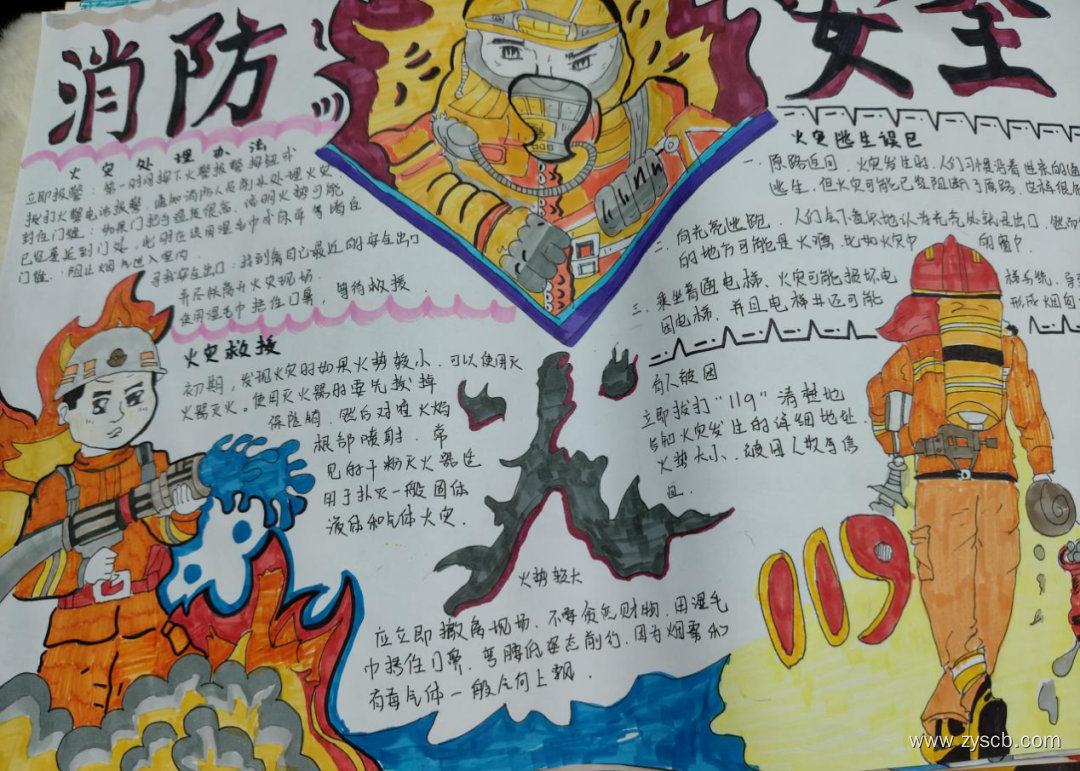 消防
安全
火灾处理办法
立即报警：第一时间按下火警报警按钮or
拨打火警电话报警，通知消防人员前来处理火灾.
封住门缝：如果门把手温度很高，说明火势可能
已经蔓延到门处，此时应该用湿毛巾or床单等堵自
门缝，阻止烟气进入室内.
寻找安全出口：找到离自己最近的安全出口
并尽快离开火灾现场.
使用湿毛巾捂住口鼻，等待救援.
火灾救援
初期，发现火灾时如果火势较小，可以使用灭
火器灭火。使用灭火器时要先拔掉
保险销，然后对准火焰
根部喷射，常
见的干粉灭火器适
用于扑灭一般固体
液体和气体火灾.
火
火势较大
应立即撤离现场，不要贪恋财物，用湿毛
巾捂住口鼻，弯腰低姿态前行，因为烟雾和
有毒气体一般会向上飘.
火灾逃生误区
一. 原路返回，火灾发生时，人们习惯沿着进来的
逃生，但火灾可能已经阻断了原路，这样很
二. 向光亮逃跑，人们会下意识地认为光亮处就是出口，然而
的地方可能是火源，比如火灾中 的窗户
三. 乘坐普通电梯、火灾可能损坏电 梯系统，导
困电梯，并且电梯井还可能 形成烟囱
有人被困
立即拨打"119"清楚地
告知火灾发生的详细地址.
火势大小、被困人数等信
息.
119
www.zyscb.com